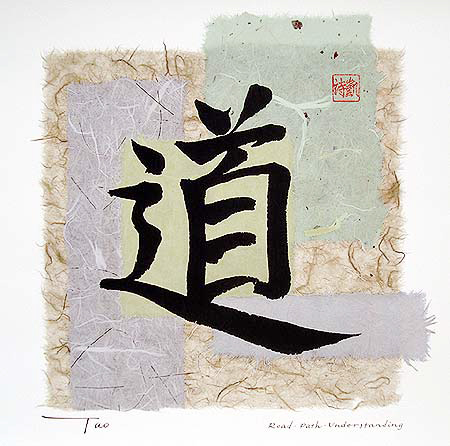 道
Tao
Road - Path - Understanding